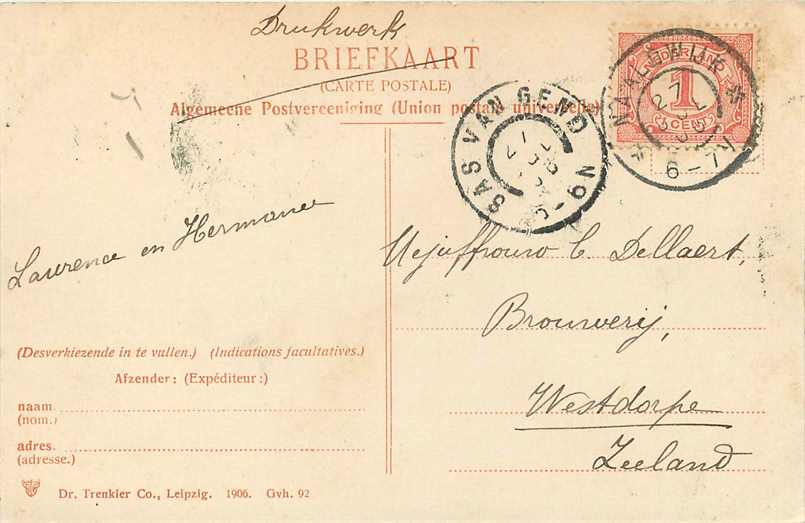 Drukwerk
BRIEFKAART
(CARTE POSTALE)
Algemeene Postvereeniging (Union postale universelle)
NAALDWIJK
6-7
NEDERLAND
1
CENT
SAS VAN GEND
Laurence en Hermance
Mejuffrouw C. Dellaert,
Brouwerij,
Westdorpe
Zeeland
(Desverkiezende in te vullen.) (Indications facultatives.)
Afzender: (Expéditeur:)
naam
(nom.)
adres.
(adresse.)
Dr. Trenkler Co., Leipzig. 1906. Gvh. 92